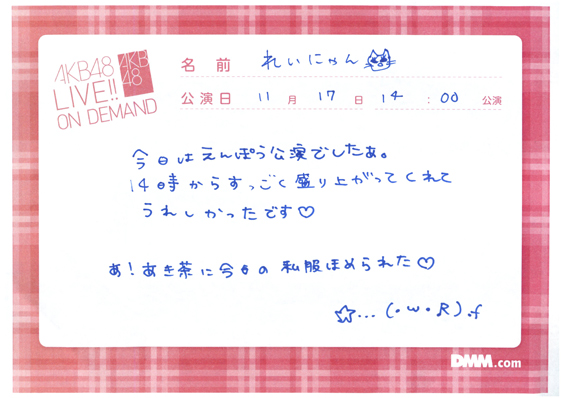 AKB48
LIVE!!
ON DEMAND
AKB
48
名 前 れいにゃん
公演日 11 月 17 日 14 : 00 公演
今日はえんぽう公演でしたぁ。
14時からすっごく盛り上がってくれて
うれしかったです♡
あ!あき茶に今日の私服ほめられた♡
☆...(・w・R).f
DMM.com